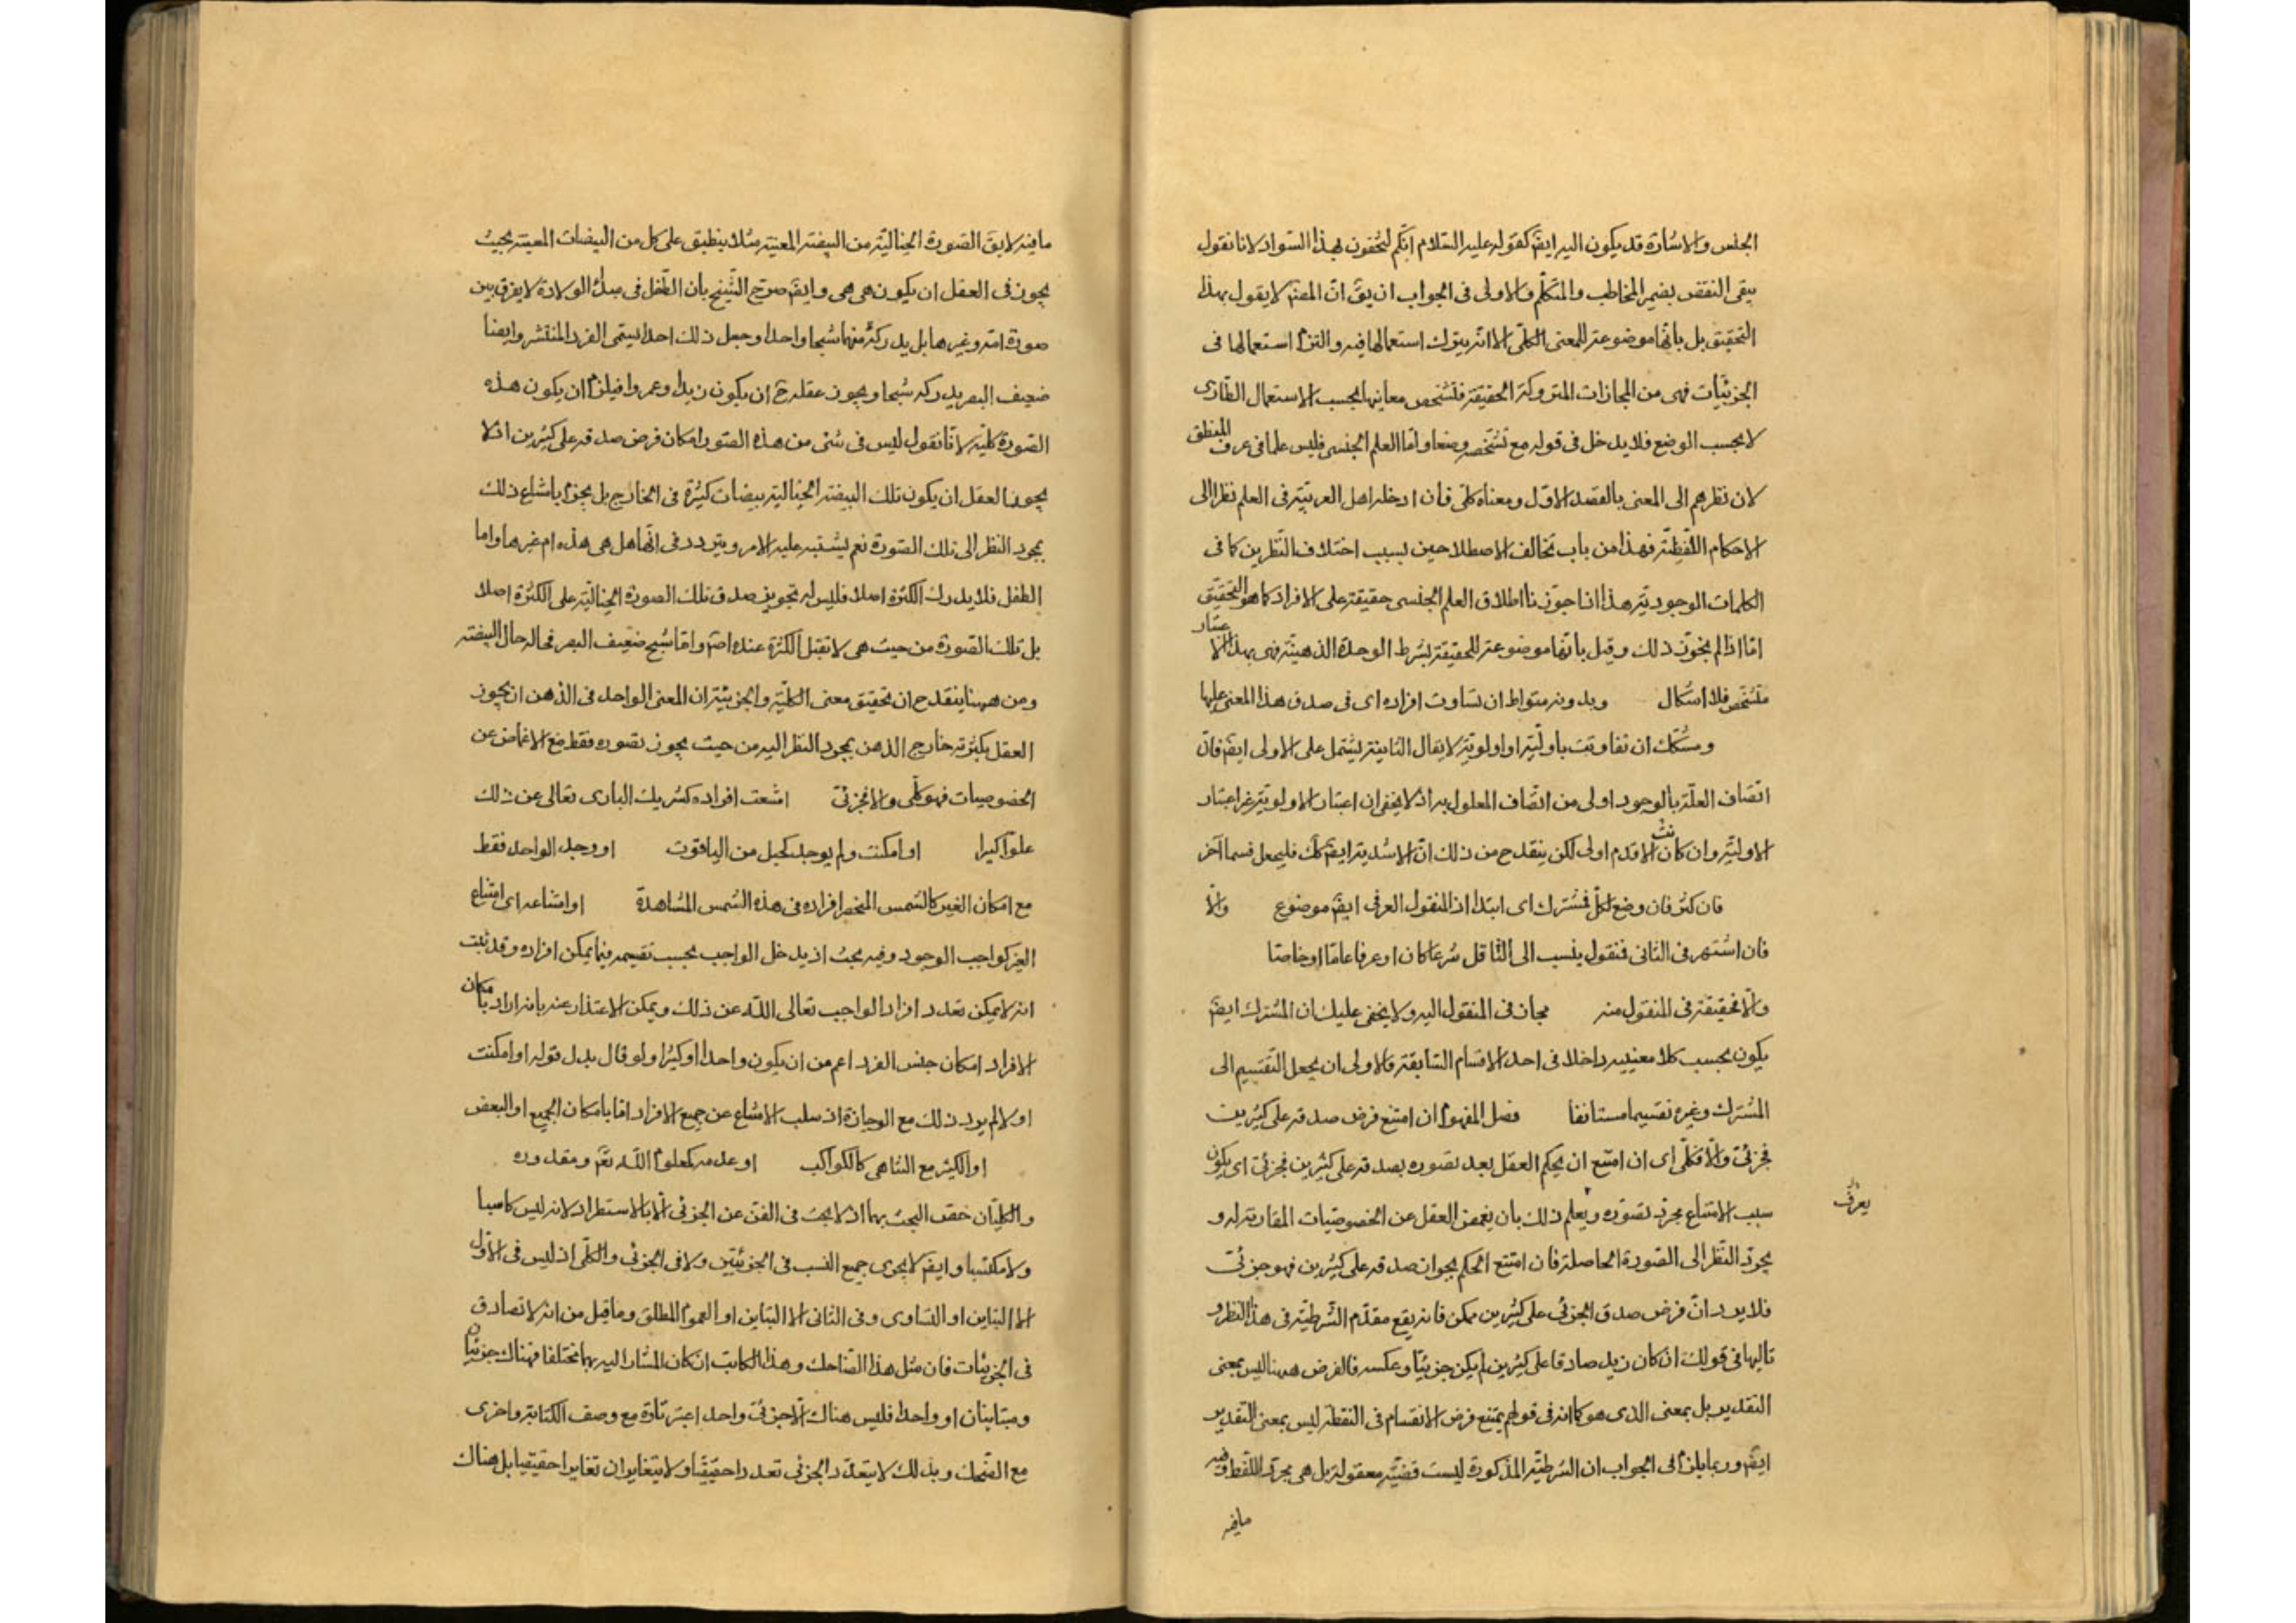 الجنس والاشارة قد يكون اليه ايضً كقوله عليه السّلام انكم لتحفون بهذا السّواد لانا نقول
يبقى النقض بضمير المخاطب والمتكلّم والاولى فى الجواب ان يقَ انّ المصنّ لا يقول بهذا
التحقيق بل بانّها موضوعة للمعنى الكلّى الا انّه يترك استعمالها فيه والتزم استعمالها فى
الجزئيّات فهى من المجازات المتروكة الحقيقة فتشخص معانيها بحسب الاستعمال الطّارى
لا بحسب الوضع فلا يدخل فى قوله مع تشخّصه وضعا وامّا العلم الجنسى فليس علما فى عرف المنطق
لان نظرهم الى المعنى بالقصد الاوّل ومعناه كلّى فان ادخله اهل العربيّة فى العلم نظرا الى
الاحكام اللّفظيّة فهذا من باب تخالف الاصطلاحين بسبب اختلاف النّظرين كما فى
الكلمات الوجوديّة هذا اذا جوّزنا اطلاق العلم الجنسى حقيقة على الافراد كما هو التحقيق
امّا اذا لم نجوّز ذلك وقيل بانّها موضوعة للحقيقة بشرط الوحدة الذهنيّة فهى بهذا الاعتبار
متشخّص فلا اشكال وبدونه متواط ان تساوت افراده اى فى صدق هذا المعنى عليها
ومشكّك ان تفاوتت باوليّة او اولويّة لا يقال الثانية يشتمل على الاولى ايضً فانّ
اتّصاف العلّة بالوجود اولى من اتّصاف المعلول به اذ لا يخفى ان اعتبار الاولويّة غير اعتبار
الاوليّة وان كانت الاقدم اولى لكن ينقدح من ذلك انّ الاشديّة ايضً كك فليجعل قسما آخر
فان كثر فان وضع لكلّ فمشترك اى ابتدا اذ المنقول العرفى ايضً موضوع والّا
فان اشتهر فى الثانى فمنقول ينسب الى النّاقل شرعا كان او عرفا عامّا او خاصّا
والّا فحقيقة فى المنقول منه مجاز فى المنقول اليه ولا يخفى عليك ان المشترك ايضً
يكون بحسب كلا معنييه داخلا فى احد الاقسام السّابقة فالاولى ان يجعل التّقسيم الى
المشترك وغيره تقسيما مستانفا فصل المفهوم ان امتنع فرض صدقه على كثيرين
فجزئى والّا فكلّى اى ان امتنع ان يحكم العقل بعد تصوره بصدقه على كثيرين فجزئى اى يكون
سبب الامتناع مجرّد تصوّره ويعلم ذلك بان يغمض العقل عن الخصوصيّات المقارنة له و
يعرف
يجرّد النّظر الى الصّورة الحاصلة فان امتنع الحكم بجواز صدقه على كثيرين فهو جزئى
فلا يرد انّ فرض صدق الجزئى على كثيرين ممكن فانه يقع مقدّم الشّرطيّة فى هذا النظر و
تاليها فى قولك ان كان زيد صادقا على كثيرين لم يكن جزئيّا وعكسه فالفرض ههنا ليس بمعنى
التقدير بل بمعنى الذى هو كما انه فى قولهم يمتنع فرض الانقسام فى النقطة ليس بمعنى التّقدير
ايضً وربما يلزم فى الجواب ان الشرطيّة المذكورة ليست قضيّة معقولة بل هى مجرّد اللّفظ وفيه
ما فيه
ما فيه لا يقَ الصّورة الخياليّة من البيضة المعيّنة مثلا ينطبق على كل من البيضات المعيّنة بحيث
يجوز فى العقل ان يكون هى هى وايضً صرّح الشّيخ بان الطّفل فى مبدأ الولادة لا يفرق بين
صورة امّه وغيرها بل يدركه منهما شبحا واحدا وجعل ذلك احدا يسمى الفرد المنتشر وايضا
ضعيف البصر يدركه شبحا ويجوز عقله ح ان يكون زيدا وعمروا فيلزم ان يكون هذه
الصّورة كليّة لانّا نقول ليس فى شئ من هذه الصّور امكان فرض صدقه على كثيرين اذ لا
يجوز العقل ان يكون تلك البيضة الخياليّة بيضات كثيرة فى الخارج بل يجزم بامتناع ذلك
بمجرد النظر الى تلك الصّورة نعم يشتبه عليه الامر ويتردد فى انّها هل هى هذه ام غيرها واما
الطفل فلا يدرك الكثرة اصلا فليس له تجويز صدق تلك الصورة الخياليّة على الكثرة اصلا
بل تلك الصّورة من حيث هى لا تقبل الكثرة عنده اصً وامّا شبح ضعيف البصر فحاله حال البيضة
ومن ههنا ينقدح ان تحقيق معنى الكلّية والجزئيّة ان المعنى الواحد فى الذهن ان يجوز
العقل بكثرته خارج الذهن بمجرد النظر اليه من حيث يجوز تصوره فقط مع الاغماض عن
الخصوصيات فهو كلّى والا فجزئى امتنعت افراده كشريك البارى تعالى عن ذلك
علوّا كبيرا او امكنت ولم يوجد كجبل من الياقوت او وجد الواحد فقط
مع امكان الغير كالشمس المنحصر افراده فى هذه الشمس المشاهدة او امتناعه اى امتناع
الغير كواجب الوجود وفيه بحث اذ يدخل الواجب بحسب تقسيمه فيما يمكن افراده وقد ثبت
انه لا يمكن تعدد افراد الواجب تعالى اللّه عن ذلك ويمكن الاعتذار عنه بانه اراد بامكان
الافراد امكان جنس الفرد اعم من ان يكون واحدا او كثيرا ولو قال بدل قوله او امكنت
او لا لم يرد ذلك مع الوجازة اذ سلب الامتناع عن جميع الافراد امّا بامكان الجميع او البعض
او الكثير مع التناهى كالكواكب او عدمه كمعلوم اللّه تعً ومقدوره
والكليّان خصّ البحث بهما اذ لا يبحث فى الفن عن الجزئى الّا بالاستطراد لانه ليس كاسبا
ولا مكتسبا وايضً لا يجرى جميع النسب فى الجزئيّين ولا فى الجزئى والكلّى اذ ليس فى الاوّل
الا التباين او التساوى وفى الثانى الا التباين او العموم المطلق وما قيل من انه لا تصادق
فى الجزئيات فان مثل هذا الضّاحك وهذا الكاتب ان كان المشار اليه بهما مختلفا فهناك جزئيان
ومتباينان او واحدا فليس هناك الّا جزئى واحد اعتبر تارة مع وصف الكتابة واخرى
مع الضّحك وبذلك لا يتعدّد الجزئى تعددا حقيقيّا ولا يتغايران تغايرا حقيقيا بل هناك